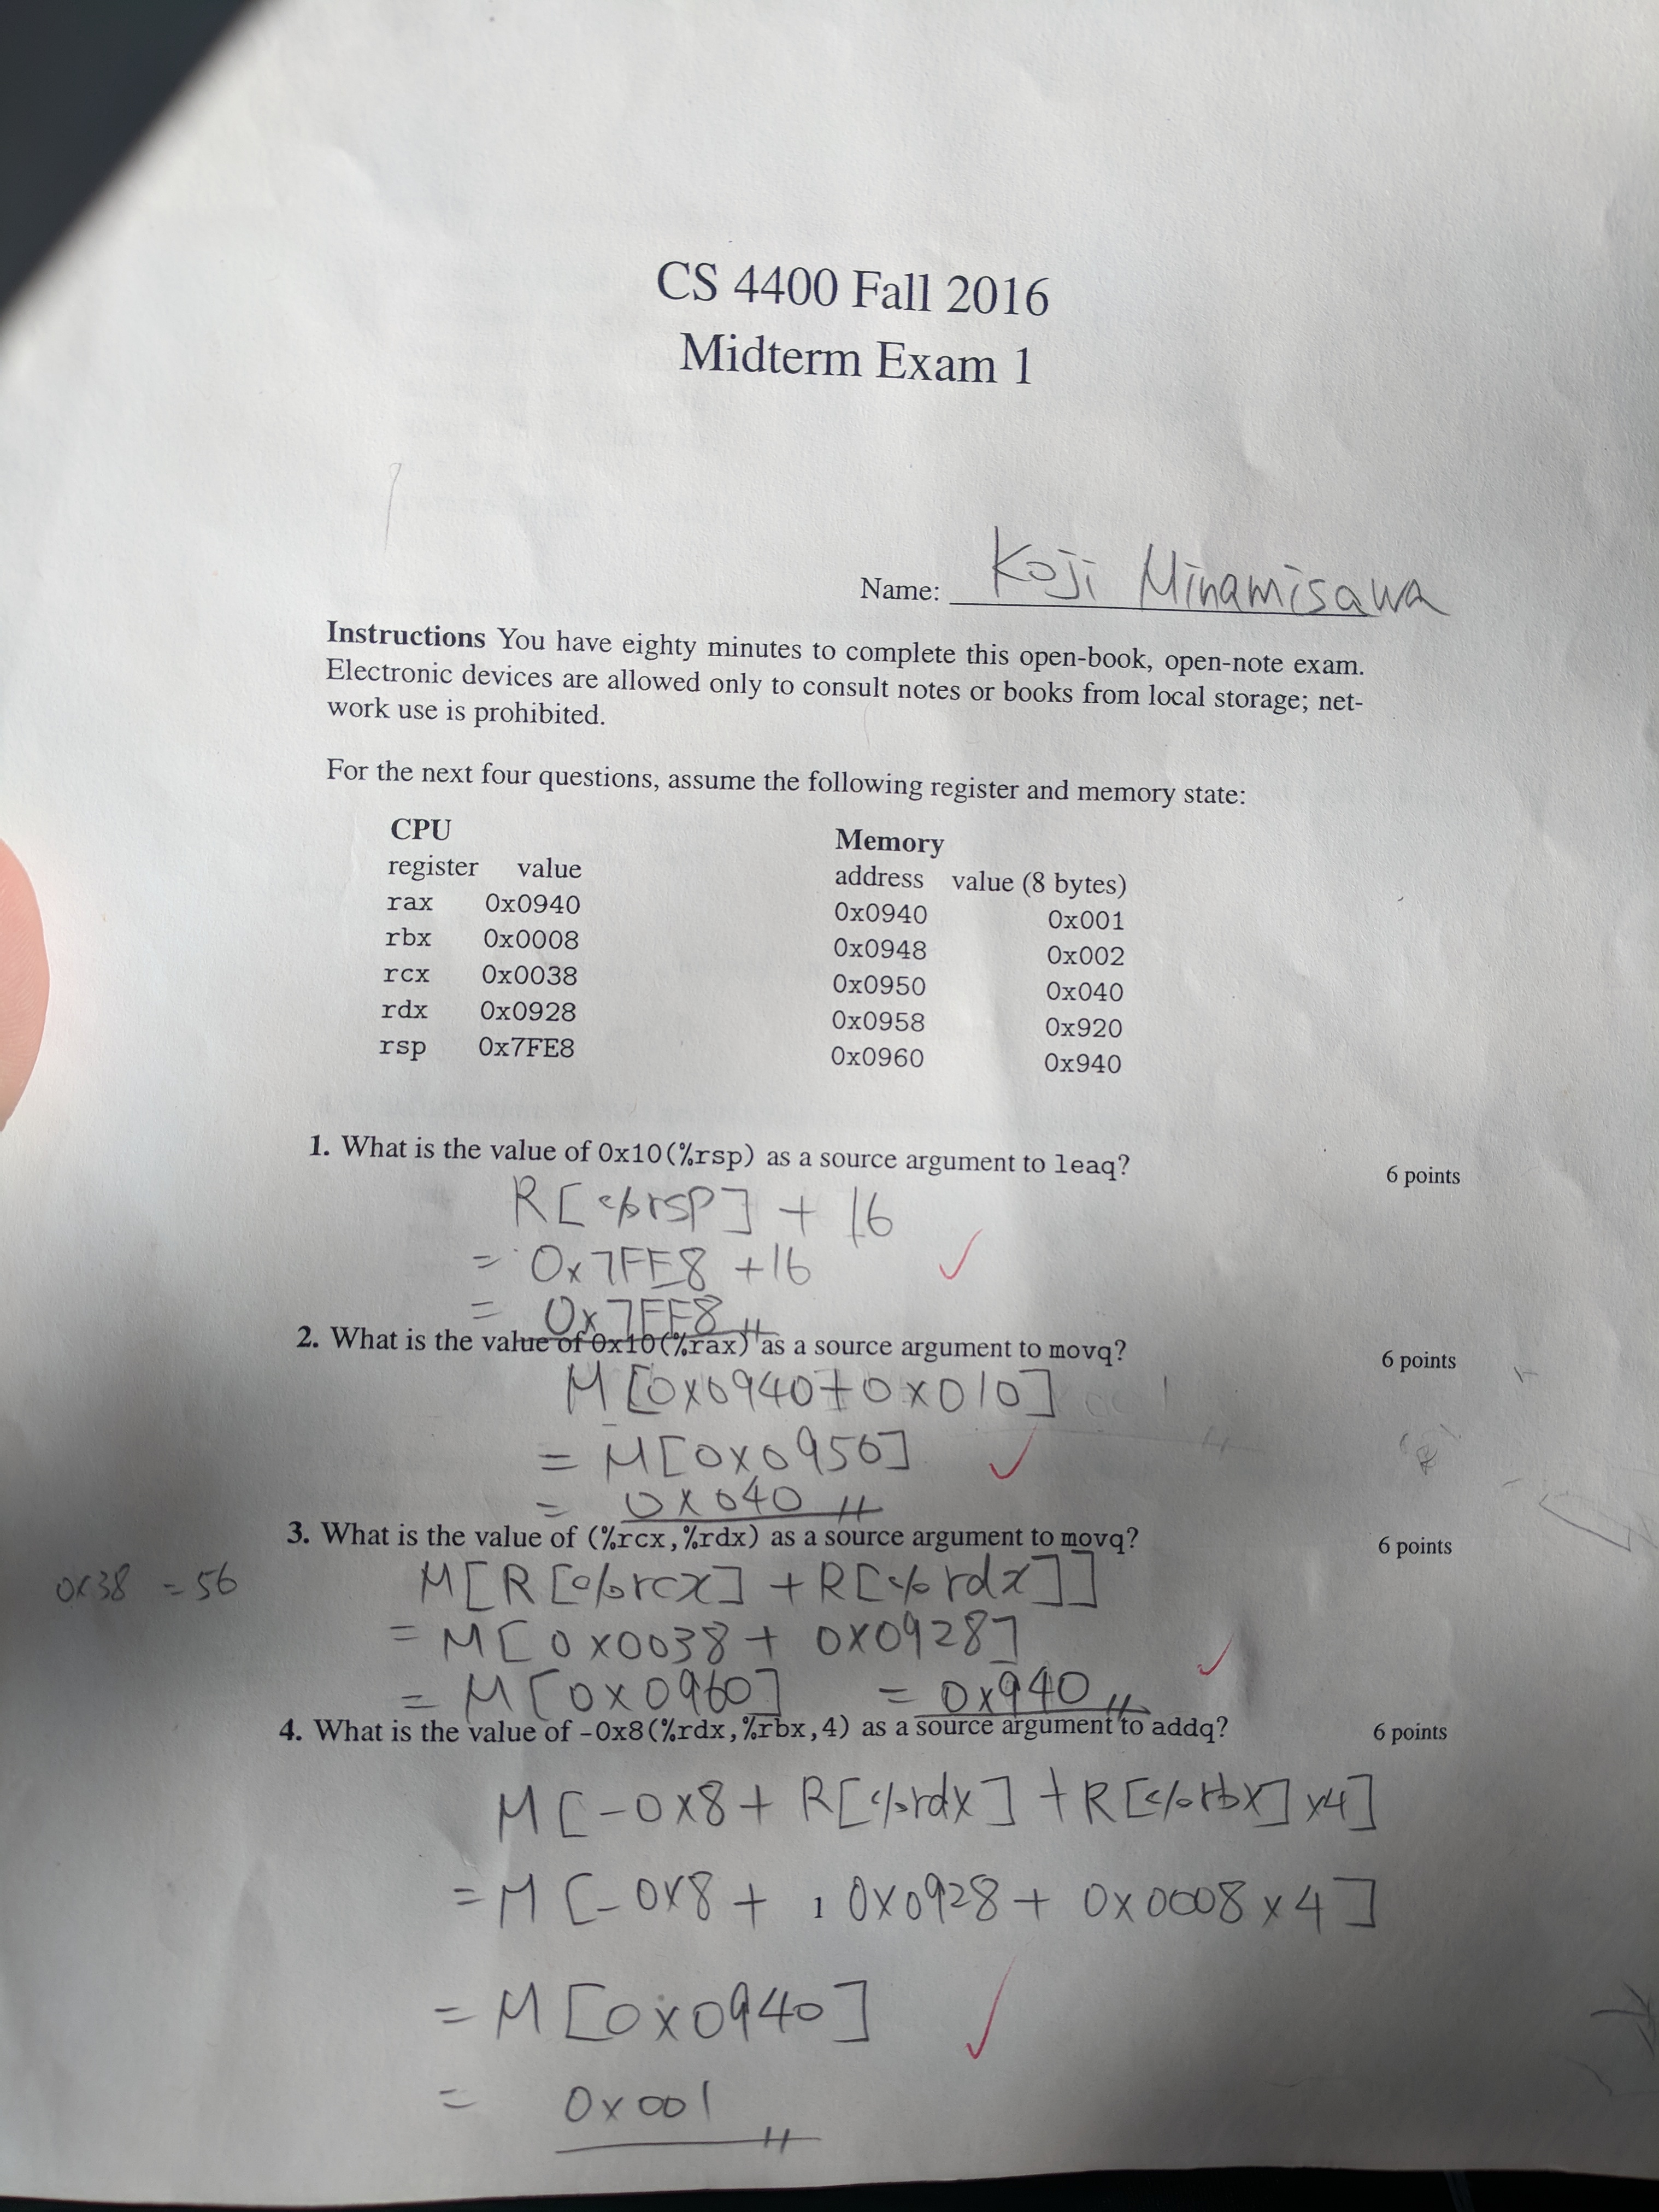 CS 4400 Fall 2016
Midterm Exam 1
Name: Koji Minamisawa
Instructions You have eighty minutes to complete this open-book, open-note exam.
Electronic devices are allowed only to consult notes or books from local storage; net-
work use is prohibited.
For the next four questions, assume the following register and memory state:
CPU
register value
rax 0x0940
rbx 0x0008
rcx 0x0038
rdx 0x0928
rsp 0x7FE8
Memory
address value (8 bytes)
0x0940 0x001
0x0948 0x002
0x0950 0x040
0x0958 0x920
0x0960 0x940
1. What is the value of 0x10(%rsp) as a source argument to leaq? 6 points
R[%rsp] + 16
= 0x7FE8 +16
= 0x7FF8
2. What is the value of 0x10(%rax) as a source argument to movq? 6 points
M[0x0940+0x010]
= M[0x0950]
= 0x040
3. What is the value of (%rcx,%rdx) as a source argument to movq? 6 points
0x38 = 56
M[R[%rcx] + R[%rdx]]
= M[0x0038 + 0x0928]
= M[0x0960] = 0x940
4. What is the value of -0x8(%rdx,%rbx,4) as a source argument to addq? 6 points
M[-0x8 + R[%rdx] + R[%rbx] x4]
= M[-0x8 + 0x0928 + 0x0008 x 4]
1
= M[0x0940]
= 0x001